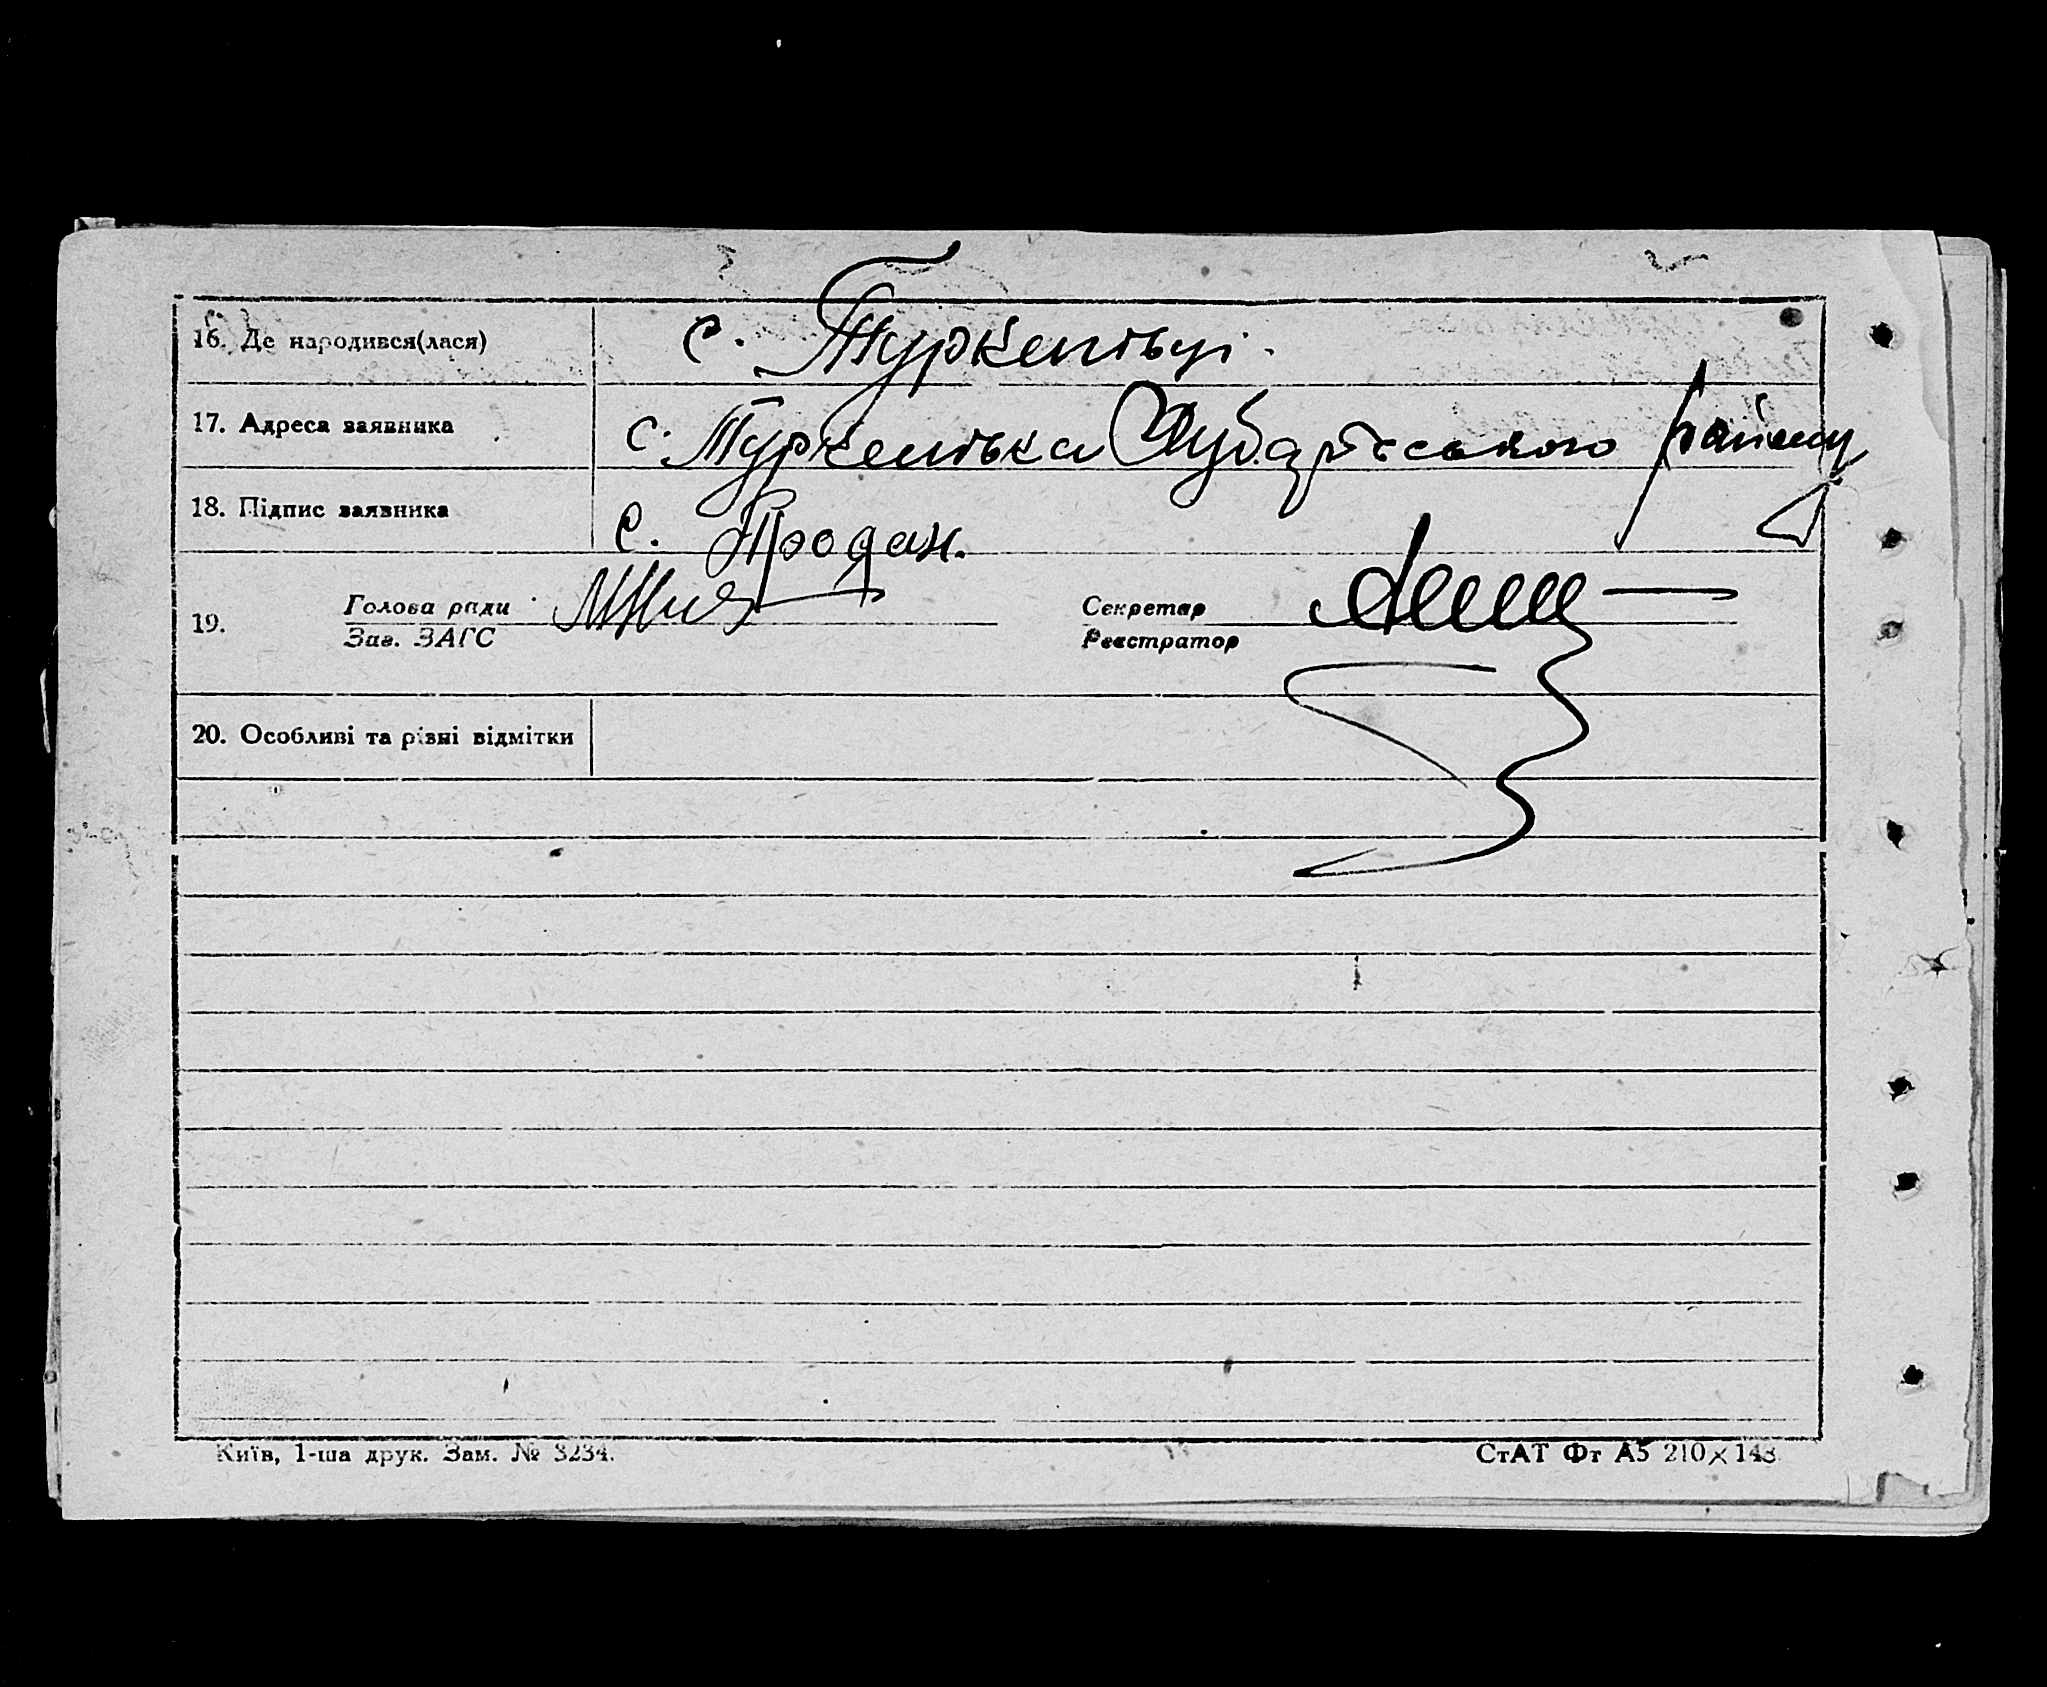 16. Де народився(лася) с. Туркенівці.
17. Адреса заявника с. Туркенівка району
18. Підпис заявника С. Продан.
19. Голова ради Секретар
Зав. ЗАГС Реєстратор
20. Особливі та різні відмітки
Київ, 1-ша друк. Зам. № 3234. СтАТ Фт А5 210×148